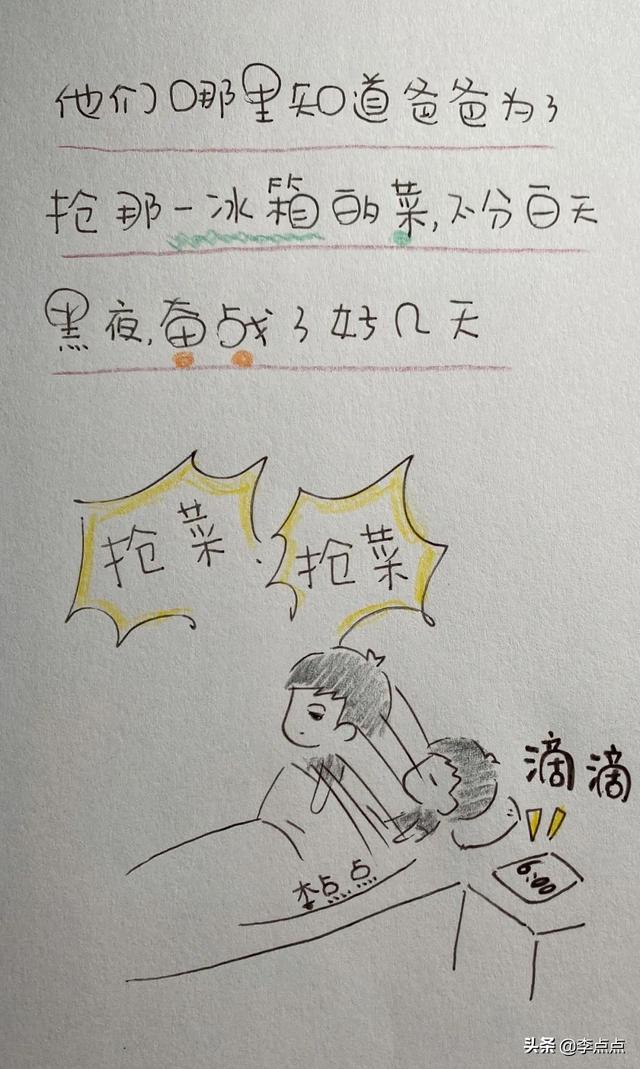 他们哪里知道爸爸为了
抢那一冰箱的菜,不分白天
黑夜,奋战了好几天
抢菜
抢菜
滴滴
6:00
李点点
头条 @李点点